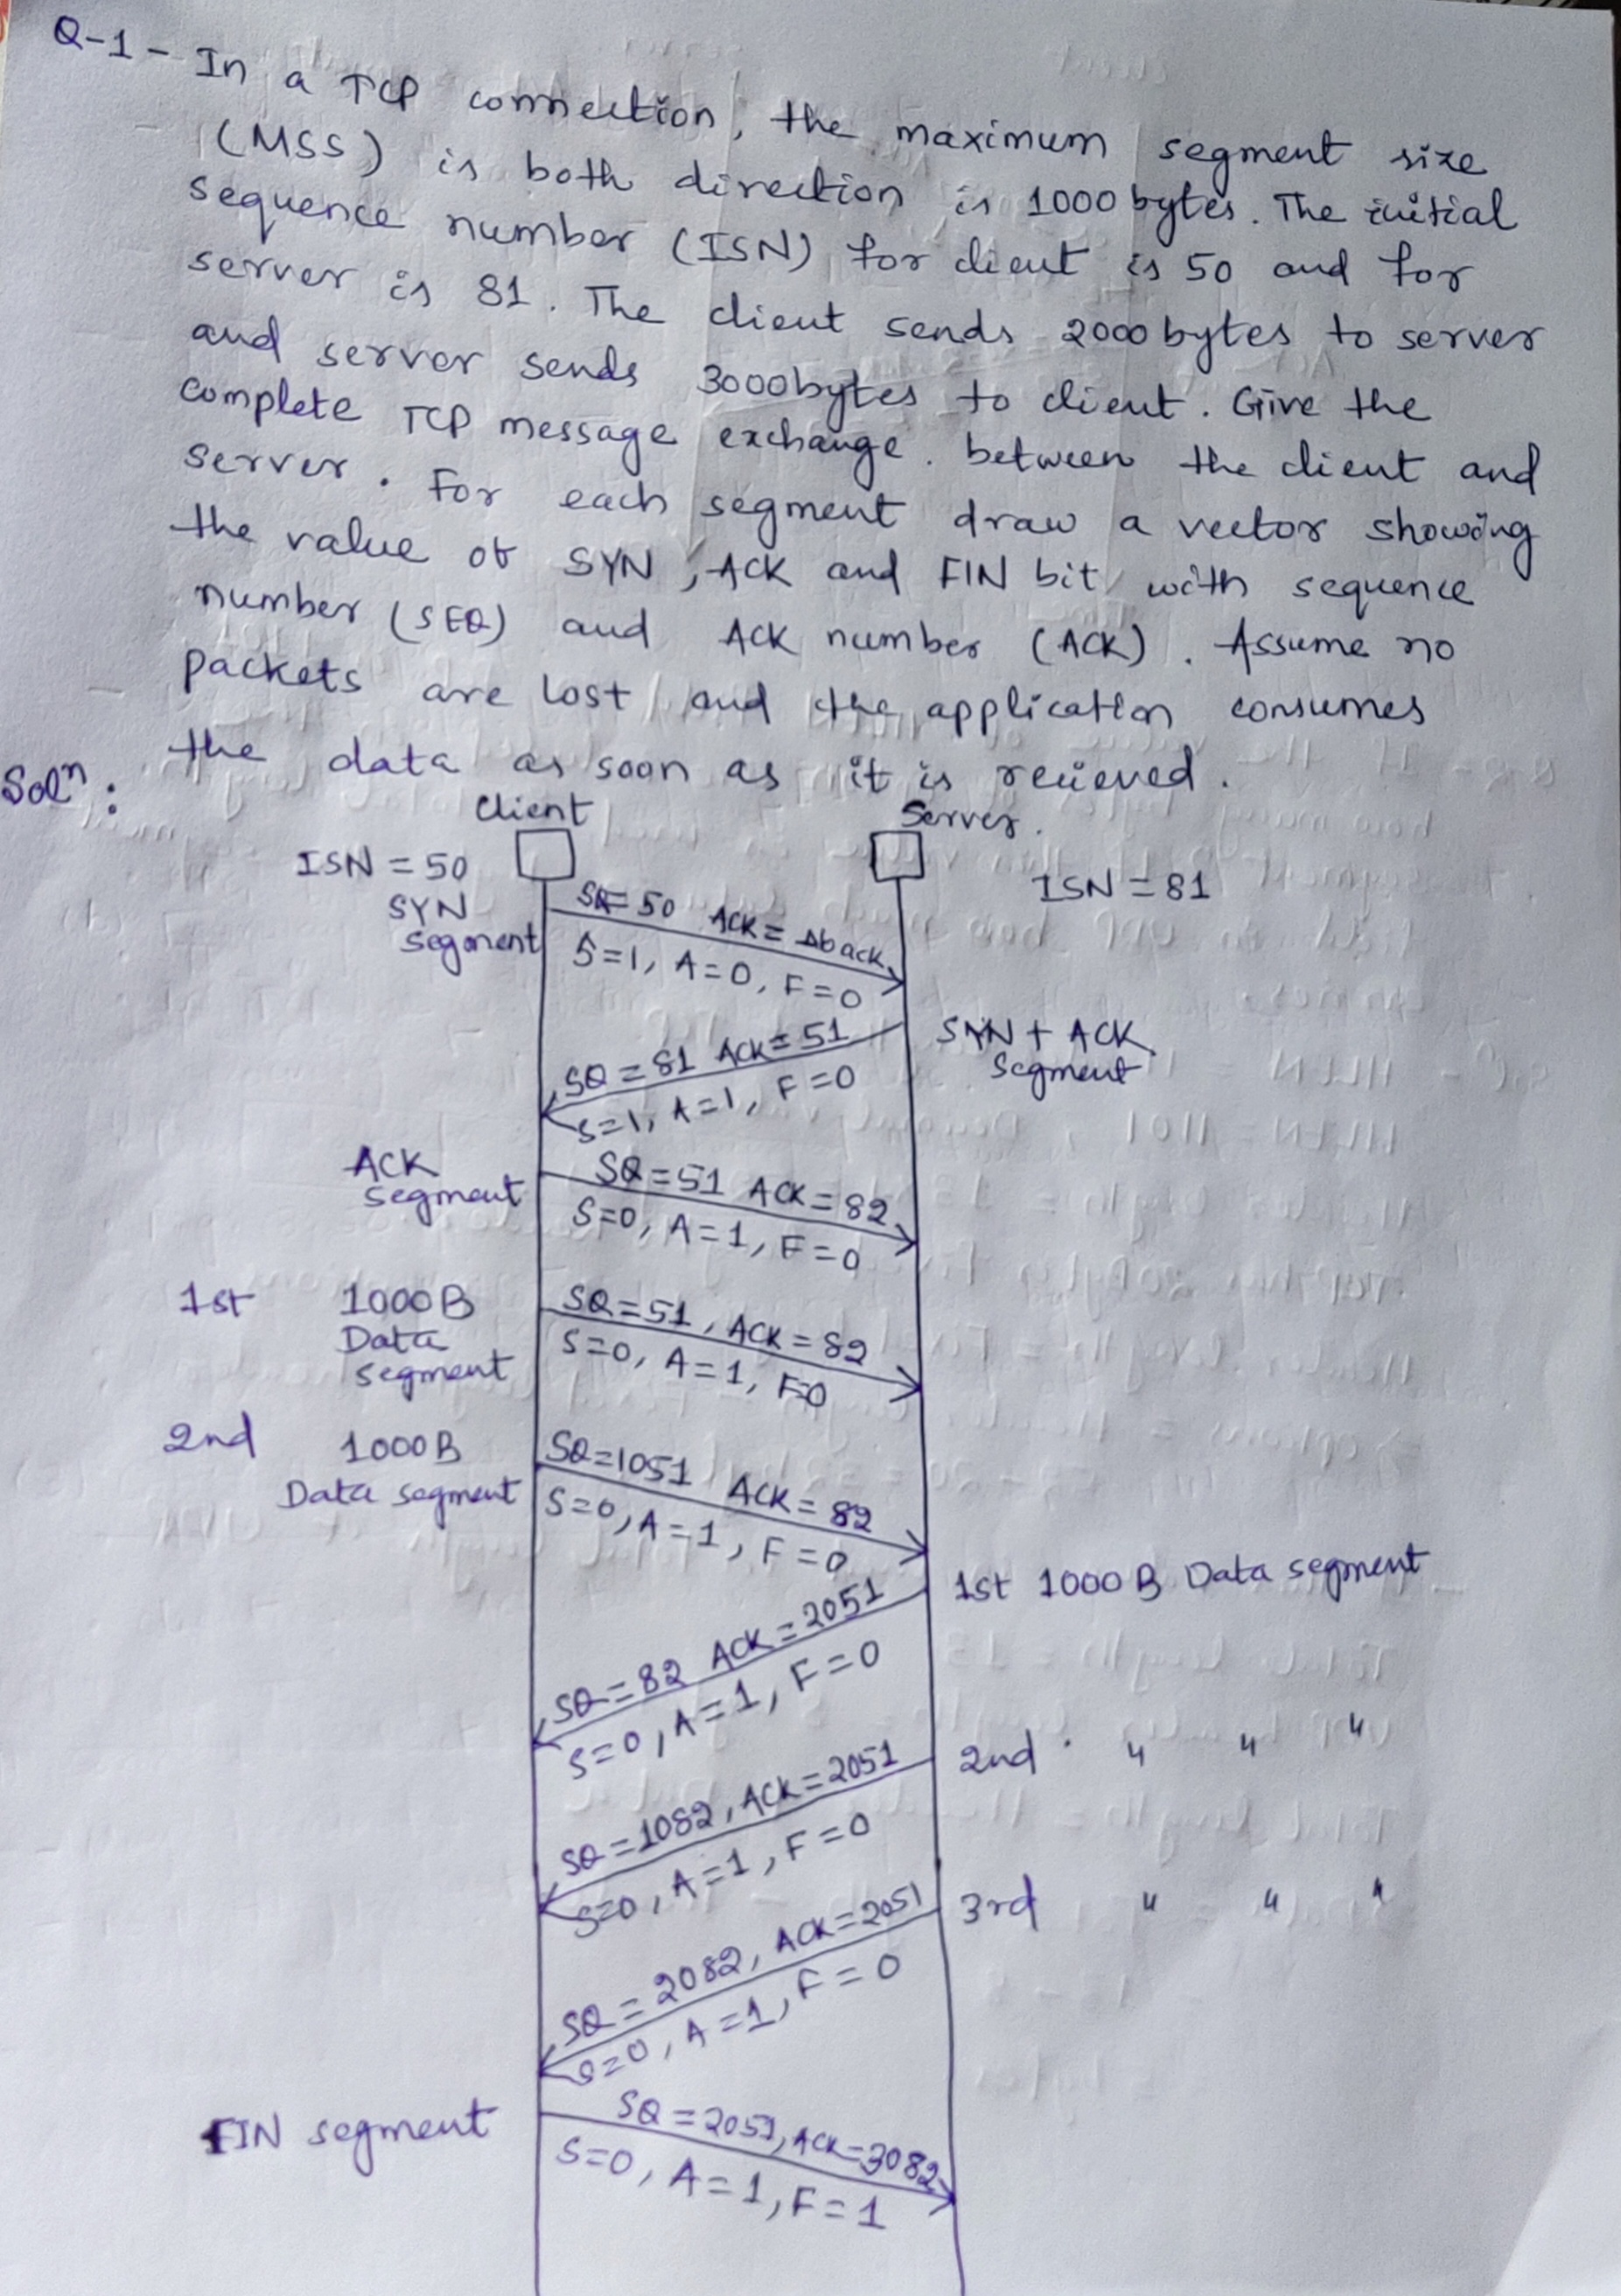 Q-1 - In a TCP connection, the maximum segment size
(MSS) is both direction is 1000 bytes. The initial
sequence number (ISN) for client is 50 and for
server is 81. The client sends 2000 bytes to server
and server sends 3000 bytes to client. Give the
complete TCP message exchange. between the client and
server. For each segment draw a vector showing
the value of SYN, ACK and FIN bit with sequence
number (SEQ) and ACK number (ACK). Assume no
packets are lost and the application consumes
the data as soon as it is recieved.
Solⁿ:
Client Server.
ISN = 50 ISN = 81
SYN
segment
SQ = 50 ACK =
S=1, A=0, F=0
SYN + ACK
Segment
SQ = 81 ACK = 51
S=1, A=1, F=0
ACK
segment
SQ = 51 ACK = 82
S=0, A=1, F=0
1st 1000B
Data
segment
SQ = 51, ACK = 82
S=0, A=1, F=0
2nd 1000B
Data segment
SQ=1051 ACK = 82
S=0, A=1, F=0
1st 1000 B Data segment
SQ = 82 ACK = 2051
S=0, A=1, F=0
2nd " " "
SQ = 1082, ACK = 2051
S=0, A=1, F=0
3rd " " "
SQ = 2082, ACK = 2051
S=0, A=1, F=0
FIN segment
SQ = 2051, ACK = 3082
S=0, A=1, F=1